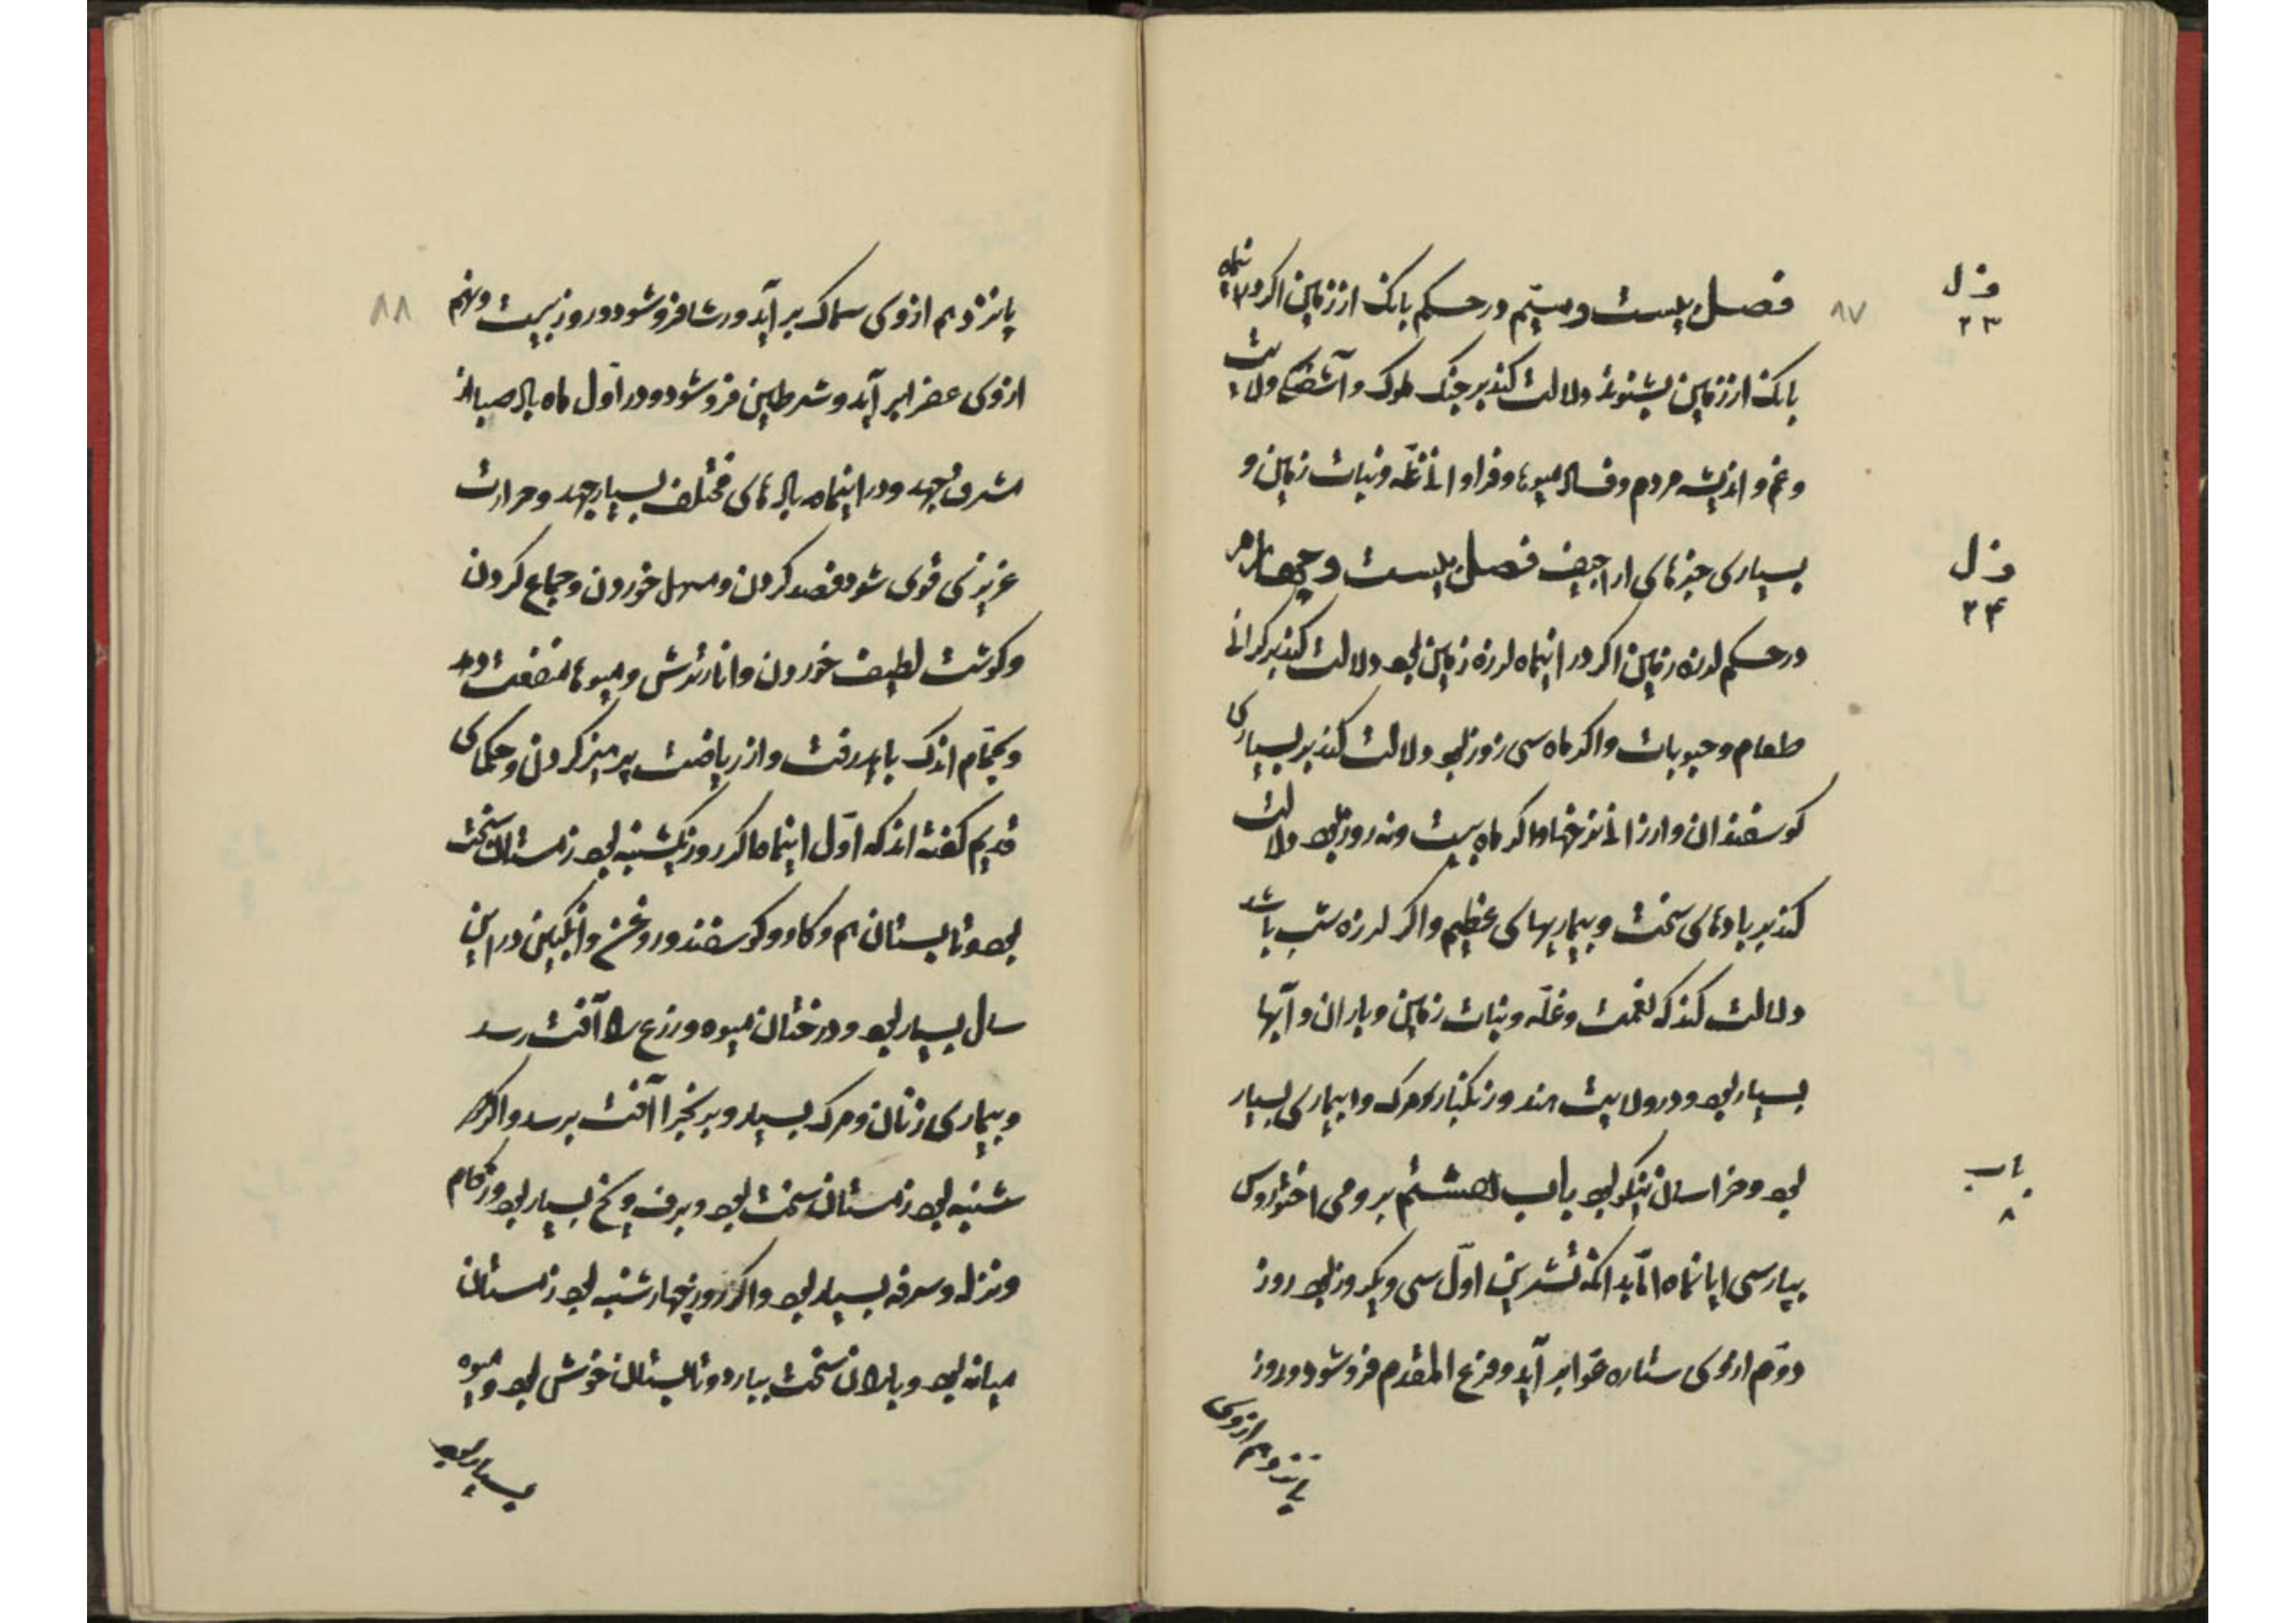 ف ل
۲۳
۸۷
فصل بیست و سیّم در حکم بانک از زمین اگر درینماه
بانک از زمین بشنوند دلالت کند بر جنک ملوک و آشفتکی ولایت
و غم و اندیشه مردم و فساد میوها و فراوانی غلّه و نبات زمین و
بسیاری خبرهای اراجیف فصل بیست و چهارم
ف ل
۲۴
در حکم لرزه زمین اگر در اینماه لرزه زمین بود دلالت کند بر کرانی
طعام و حبوبات و اگر ماه سی روز بود دلالت کند بر بسیاری
کوسفندان و ارزانی نرخها و اگر ماه بیست و نه روز بود دلالت
کند بر بادهای سخت و بیماریهای عظیم و اگر لرزه شب باشد
دلالت کند که نعمت و غلّه و نبات زمین و باران و آبها
بسیار بود و در ولایت هند و زنکبار مرک و بیماری بسیار
بود و خراسان نیکو بود باب هشتم برومی
باب
۸
بپارسی ابانماه تشرین اوّل سی و یکروز بود روز
دوّم از وی ستاره عوّا بر آید و فرغ المقدم فرو شود و روز
پانزدهم از وی
۸۸
پانزدهم از وی سماک بر آید و رشا فرو شود و روز بیست و نهم
از وی غفر بر آید و شرطین فرو شود و در اوّل ماه باد صبا از
مشرق بجهد و در اینماه بادهای مختلف بسیار جهد و حرارت
عزیزی قوی شود فصد کردن و مسهل خوردن و جماع کردن
و کوشت لطیف خوردن و انار ترش و میوها منفعت دهد
و بحمّام اندک باید رفت و از ریاضت پرهیز کردن و حکمای
قدیم کفته اند که اوّل اینماه اگر روز یکشنبه بود زمستان سخت
بود و تابستان هم و کاو و کوسفند و روغن و انکبین در این
سال بسیار بود و درختان میوه و زرع را آفت رسد
و بیماری زنان و مرک بسیار و آفت برسد و اگر
شنبه بود زمستان سخت بود و برف و یخ بسیار بود و زکام
و نزله و سرفه بسیار بود و اگر روز چهارشنبه بود زمستان
میانه بود و باران سخت ببارد و تابستان خوش بود و میوه
بسیار بود